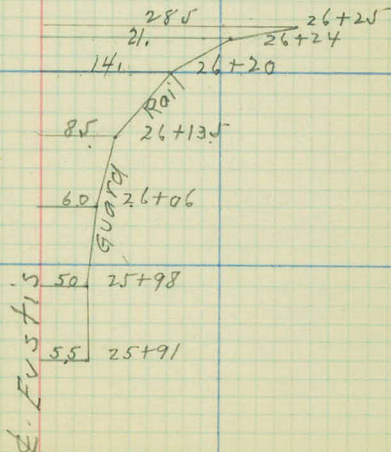 28.5 26+25
21. 26+24
14. 26+20
Guard Rail
8.5 26+13.5
6.0 26+06
5.0 25+98
5.5 25+91
℄ Eustis